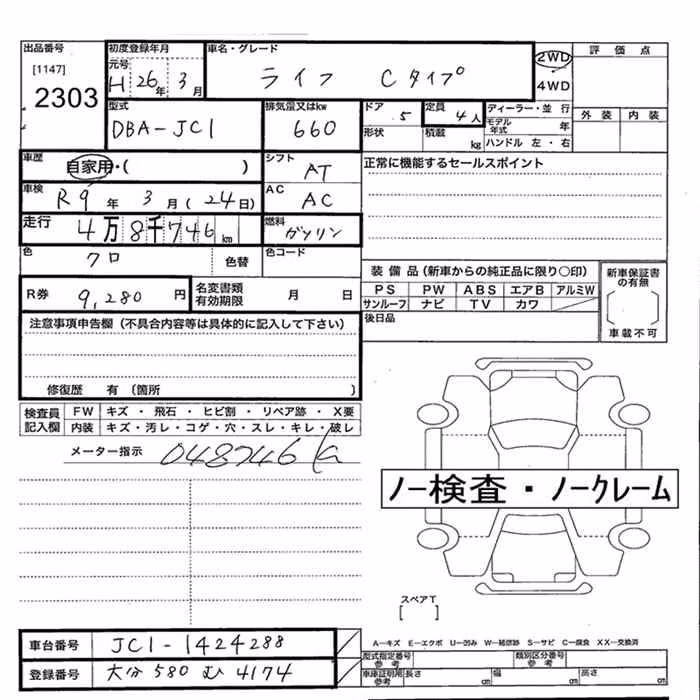 出品番号 初度登録年月 車名・グレード 評価点
[1147] 元号 H 26年 3月 ライフ Cタイプ 2WD 4WD
2303
型式 排気量又はkw ドア 定員 ディーラー・並行 外装 内装
DBA-JC1 660 5 4人 モデル年式 年
形状 積載 kg ハンドル 左・右
車歴 自家用・( ) シフト AT 正常に機能するセールスポイント
車検 R9年 3月(24日) AC AC
走行 4万8千746km 燃料 ガソリン
色 クロ 色替 色コード
装備品(新車からの純正品に限り○印) 新車保証書の有無
R券 9,280円 名変書類有効期限 月 日 PS PW ABS エアB アルミW
サンルーフ ナビ TV カワ
[ ] 車載不可
注意事項申告欄(不具合内容等は具体的に記入して下さい) 後日品
修復歴 有(箇所 )
検査員 FW キズ・飛石・ヒビ割・リペア跡・X要
記入欄 内装 キズ・汚レ・コゲ・穴・スレ・キレ・破レ
メーター指示 048746
ノー検査・ノークレーム
スペアT
[ ]
A-キズ E-エクボ U-凹み W-補修跡 S-サビ C-腐食 XX-交換済
車台番号 JC1-1424288 型式指定番号 参考 類別区分番号 参考
登録番号 大分 580 む 4174 車庫証明用 参考 長さ cm 幅 cm 高さ cm